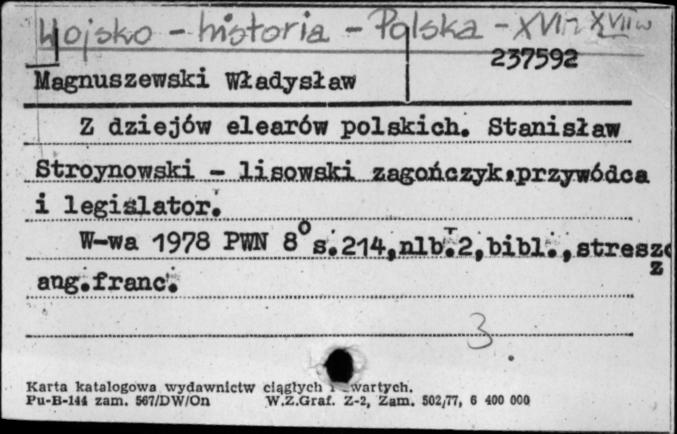 Wojsko - historia - Polska - XVI-XVII w
237592
Magnuszewski Władysław
Z dziejów elearów polskich. Stanisław
Stroynowski - lisowski zagończyk, przywódca
i legislator.
W-wa 1978 PWN 8° s. 214, nlb. 2, bibl., streszcz
ang. franc.
3.
Karta katalogowa wydawnictw ciągłych i zwartych.
Pu-B-144 zam. 567/DW/On W.Z.Graf. Z-2, Zam. 502/77, 6 400 000